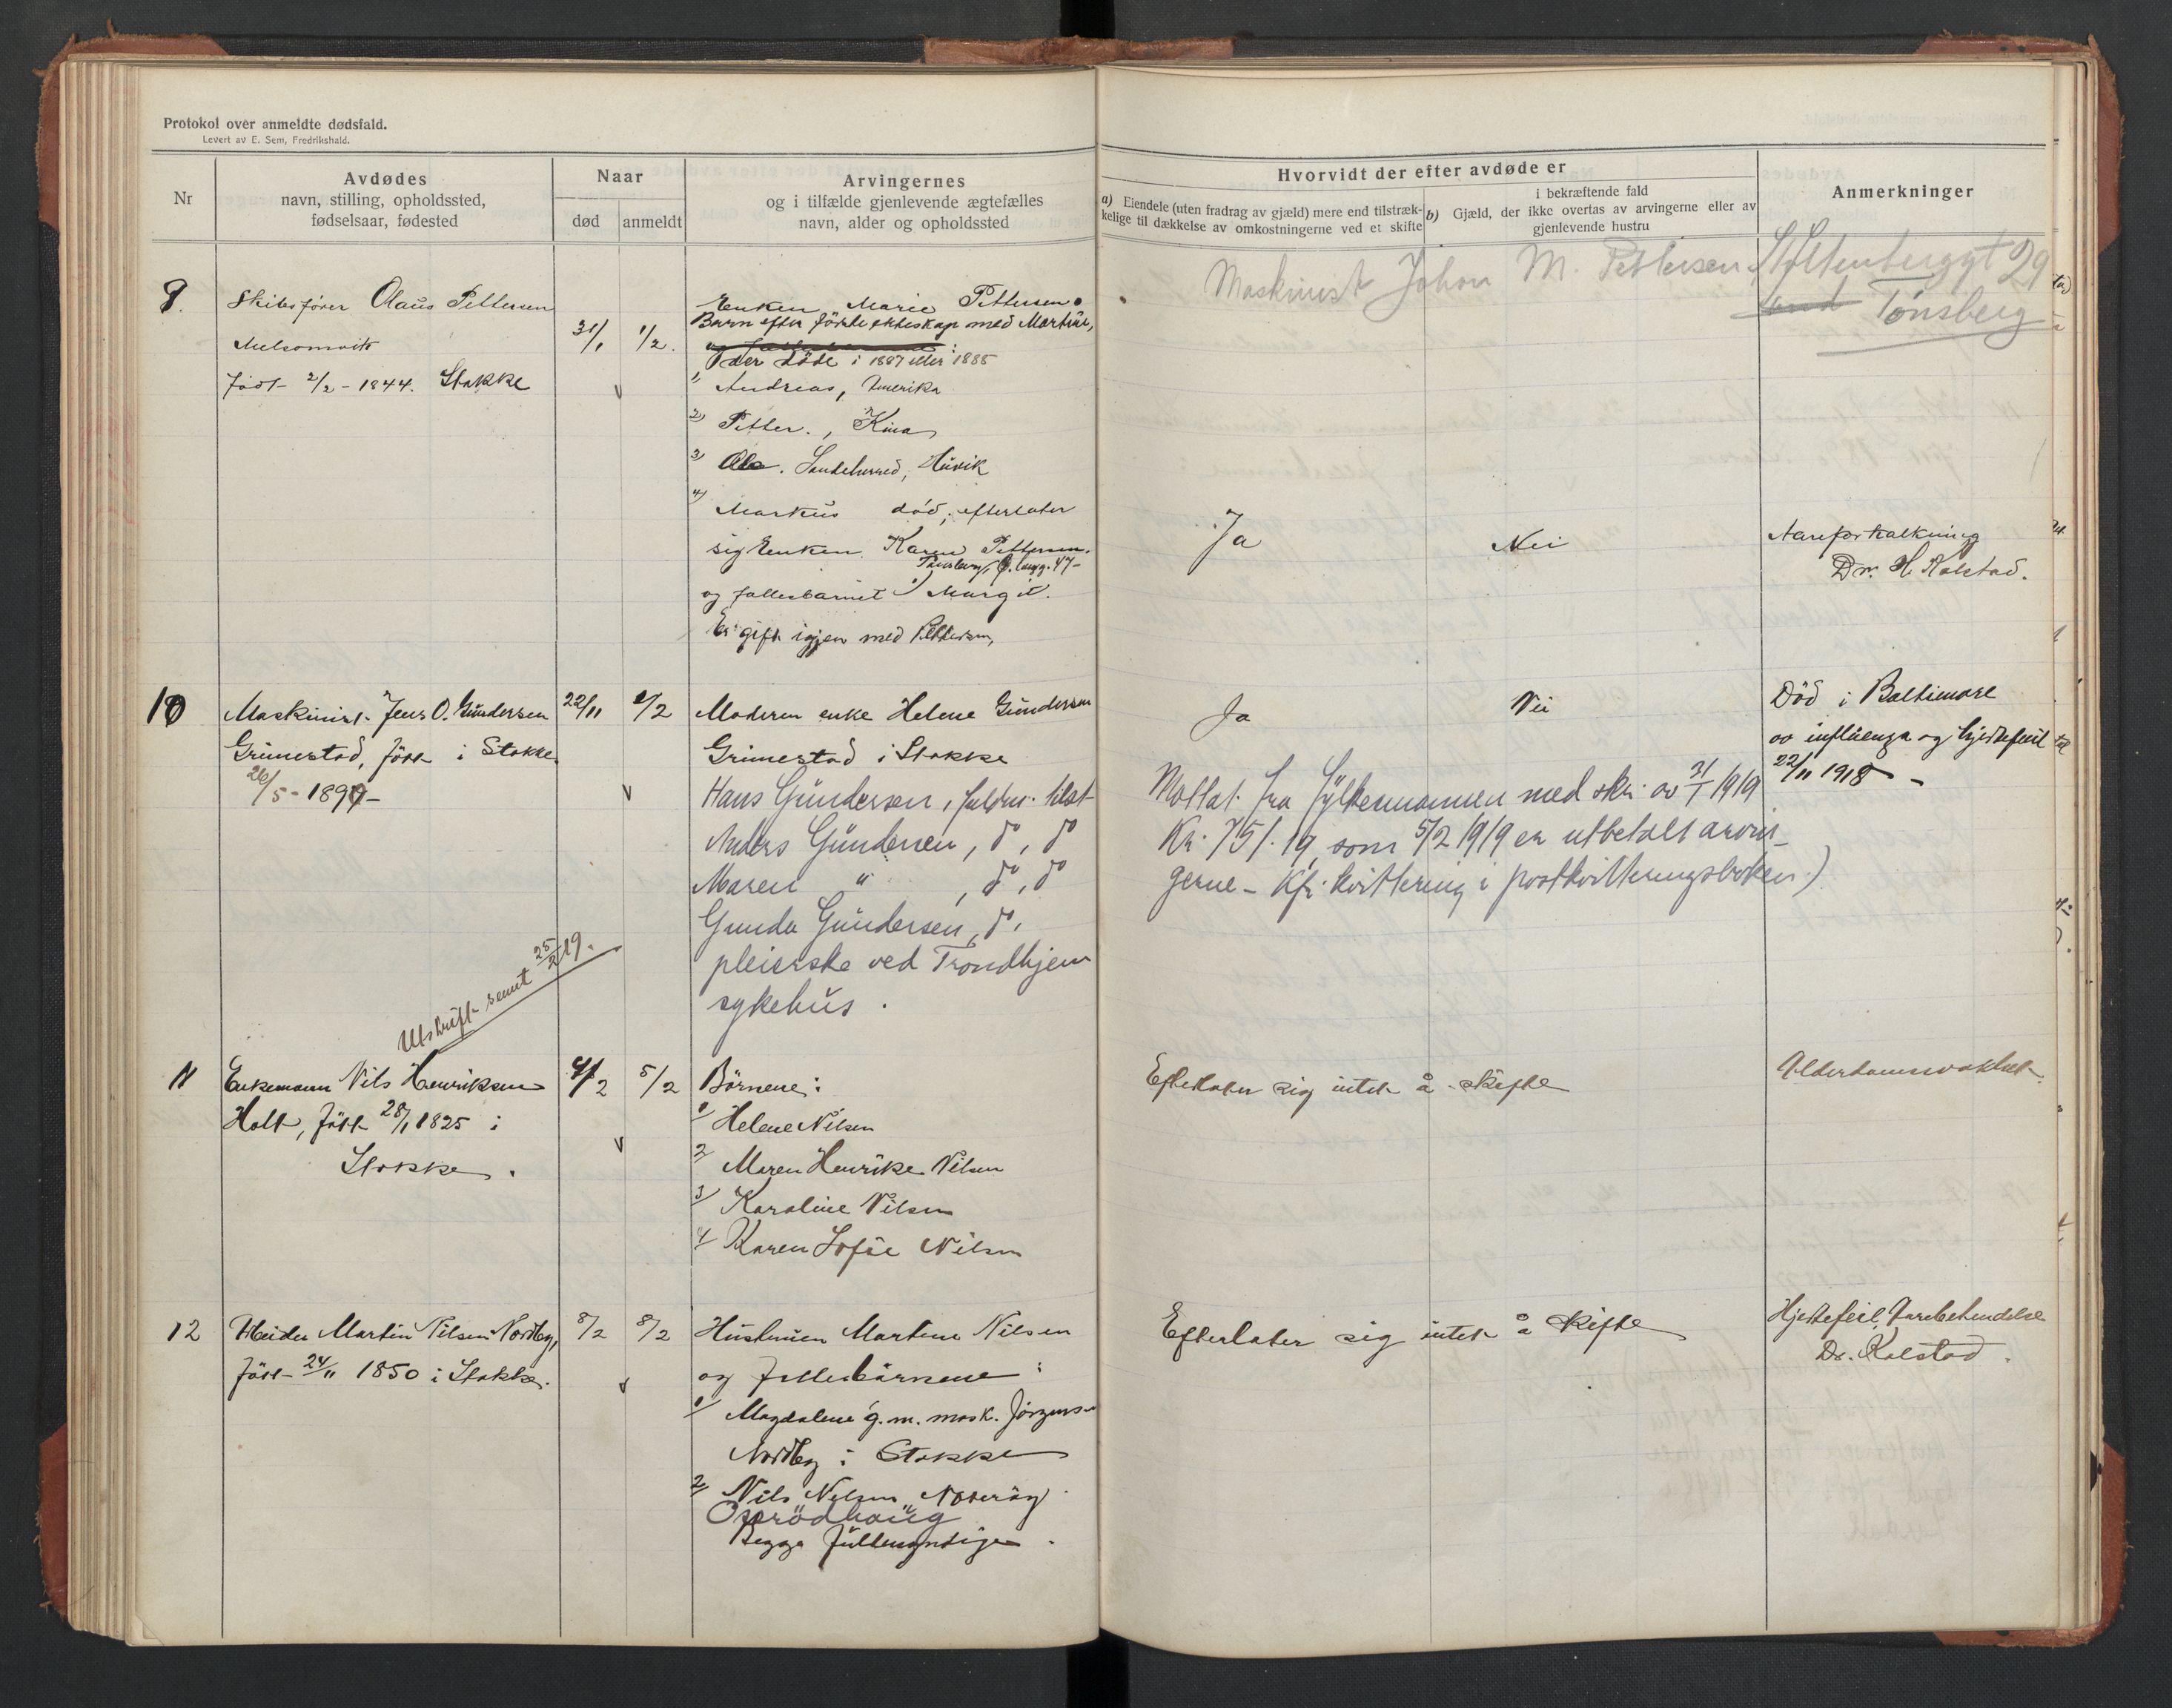 Protokol over anmeldte dødsfald.
Levert av E. Sem, Fredrikshald.
Nr
Avdødes
navn, stilling, opholdssted,
fødselsaar, fødested
Naar
død
anmeldt
Arvingernes
og i tilfælde gjenlevende ægtefælles
navn, alder og opholdssted
Hvorvidt der efter avdøde er
a) Eiendele (uten fradrag av gjæld) mere end tilstræk-
kelige til dækkelse av omkostningerne ved et skifte
i bekræftende fald
b) Gjæld, der ikke overtas av arvingerne eller av
gjenlevende hustru
Anmerkninger
Maskinist Johan M. Pettersen Stoltenberggt 29
Tønsberg
9.
Skibsfører Olaus Pettersen
Melsomvik
født 2/2 - 1844. Stokke
31/1
1/2.
Enken Marie Pettersen
Barn efter første ekteskap med Martine,
der døde i 1887 eller 1885
1) Andreas, Amerika
2) Petter., Kina
3) Ole. Sandeherred, Husvik
4) Markus død, efterlater
sig Enken Karen Pettersen.
Tønsberg, 47-
og fællesbarnet 1) Margit.
Er gift igjen med Pettersen,
Ja
Nei
Aareforkalkning
Dr. H. Kolstad.
10
Maskinist Jens O. Gundersen
Grimestad, født i Stokke
26/5 - 1890 -
22/11
1/2
Moderen enke Helene Gundersen
Grimestad i Stokke
Hans Gundersen, fuldm. tilst
Anders Gundersen, do, do
Maren " , do, do
Gunda Gundersen, do,
pleierske ved Trondhjem
sykehus.
Ja
Nei
Død i Baltimore
av influenza og hjertefeil
22/11 1918 -
Mottat fra fylkesmannen med skr. av 31/1 1919
Kr. 751.19, som 5/2 1919 er utbetalt arvin-
gerne - Kfr. kvittering i postkvitteringsboken.)
Utskrift sendt 25/2 19.
11
Enkemann Nils Henriksen
Holt, født 28/1 1825 i
Stokke.
4/2
5/2
Børnene:
1/ Helene Nilsen
2/ Maren Henrike Nilsen
3/ Karoline Nilsen
4/ Karen Sofie Nilsen
Efterlater sig intet å skifte
Alderdomssvakhet
12
Arbeider Martin Nilsen Nordby,
født 24/11 1850 i Stokke.
8/2
8/2
Hustruen Martine Nilsen
og fællesbørnene:
1/ Magdalene g.m. mask. Jørgensen
Nordby i Stokke
2/ Nils Nilsen Nøterøy
Oserødhaug
Begge fuldmyndige.
Efterlater sig intet å skifte
Hjertefeil, Aarebetendelse
Dr. Kolstad.